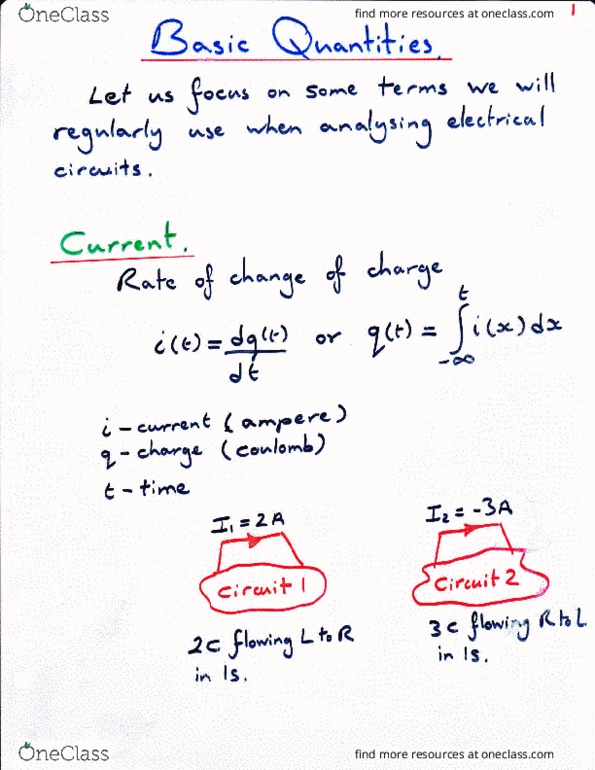 OneClass
find more resources at oneclass.com
1
Basic Quantities.
Let us focus on some terms we will
regularly use when analysing electrical
circuits.
Current.
Rate of change of charge
i(t) = dq(t)/dt or q(t) = ∫_{-∞}^{t} i(x) dx
i - current (ampere)
q - charge (coulomb)
t - time
I₁ = 2A
I₂ = -3A
circuit 1
circuit 2
2c flowing L to R
in 1s.
3c flowing R to L
in 1s.
OneClass
find more resources at oneclass.com